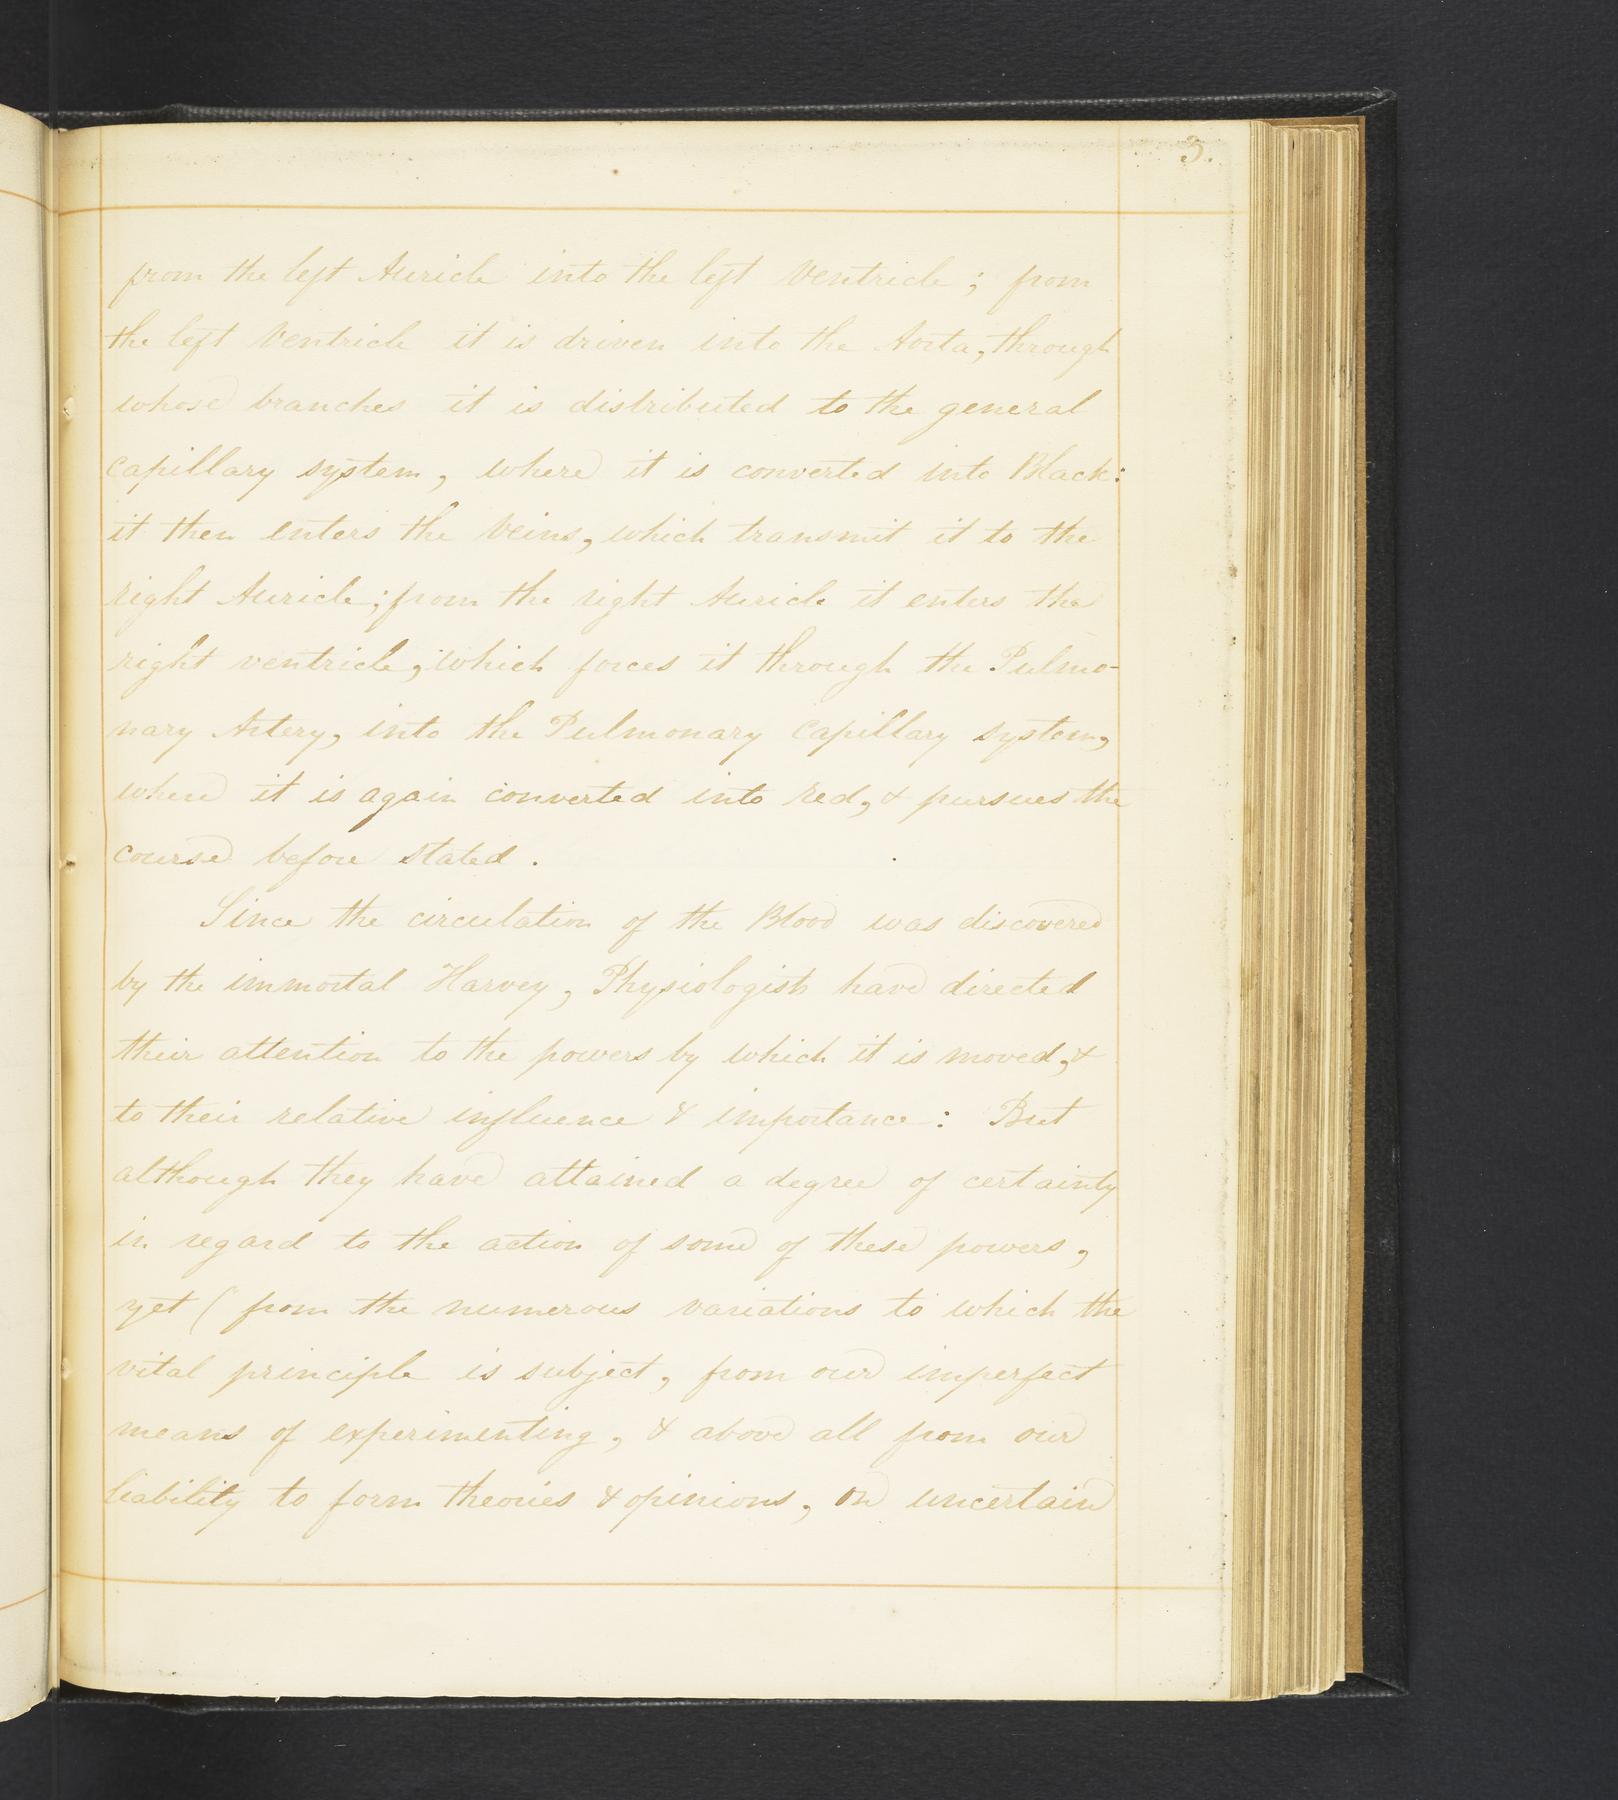 3.
from the left Auricle into the left Ventricle; from
the left Ventricle it is driven into the Aorta, through
whose branches it is distributed to the general
Capillary system, where it is converted into Black:
it then enters the Veins, which transmit it to the
right Auricle; from the right Auricle it enters the
right ventricle, which forces it through the Pulmo-
nary Artery, into the Pulmonary Capillary system,
where it is again converted into red, & pursues the
course before stated.
Since the circulation of the Blood was discovered
by the immortal Harvey, Physiologists have directed
their attention to the powers by which it is moved, &
to their relative influence & importance: But
although they have attained a degree of certainty
in regard to the action of some of these powers,
yet (from the numerous variations to which the
vital principle is subject, from our imperfect
means of experimenting, & above all from our
liability to form theories & opinions, on uncertain